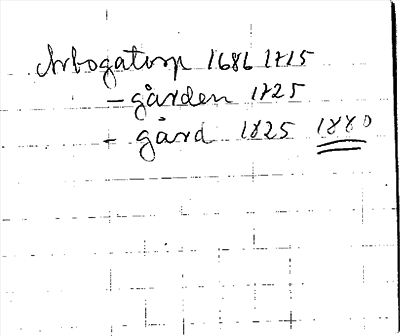 Arbogatorp 1686 1715
- gården 1725
- gård 1825 1880